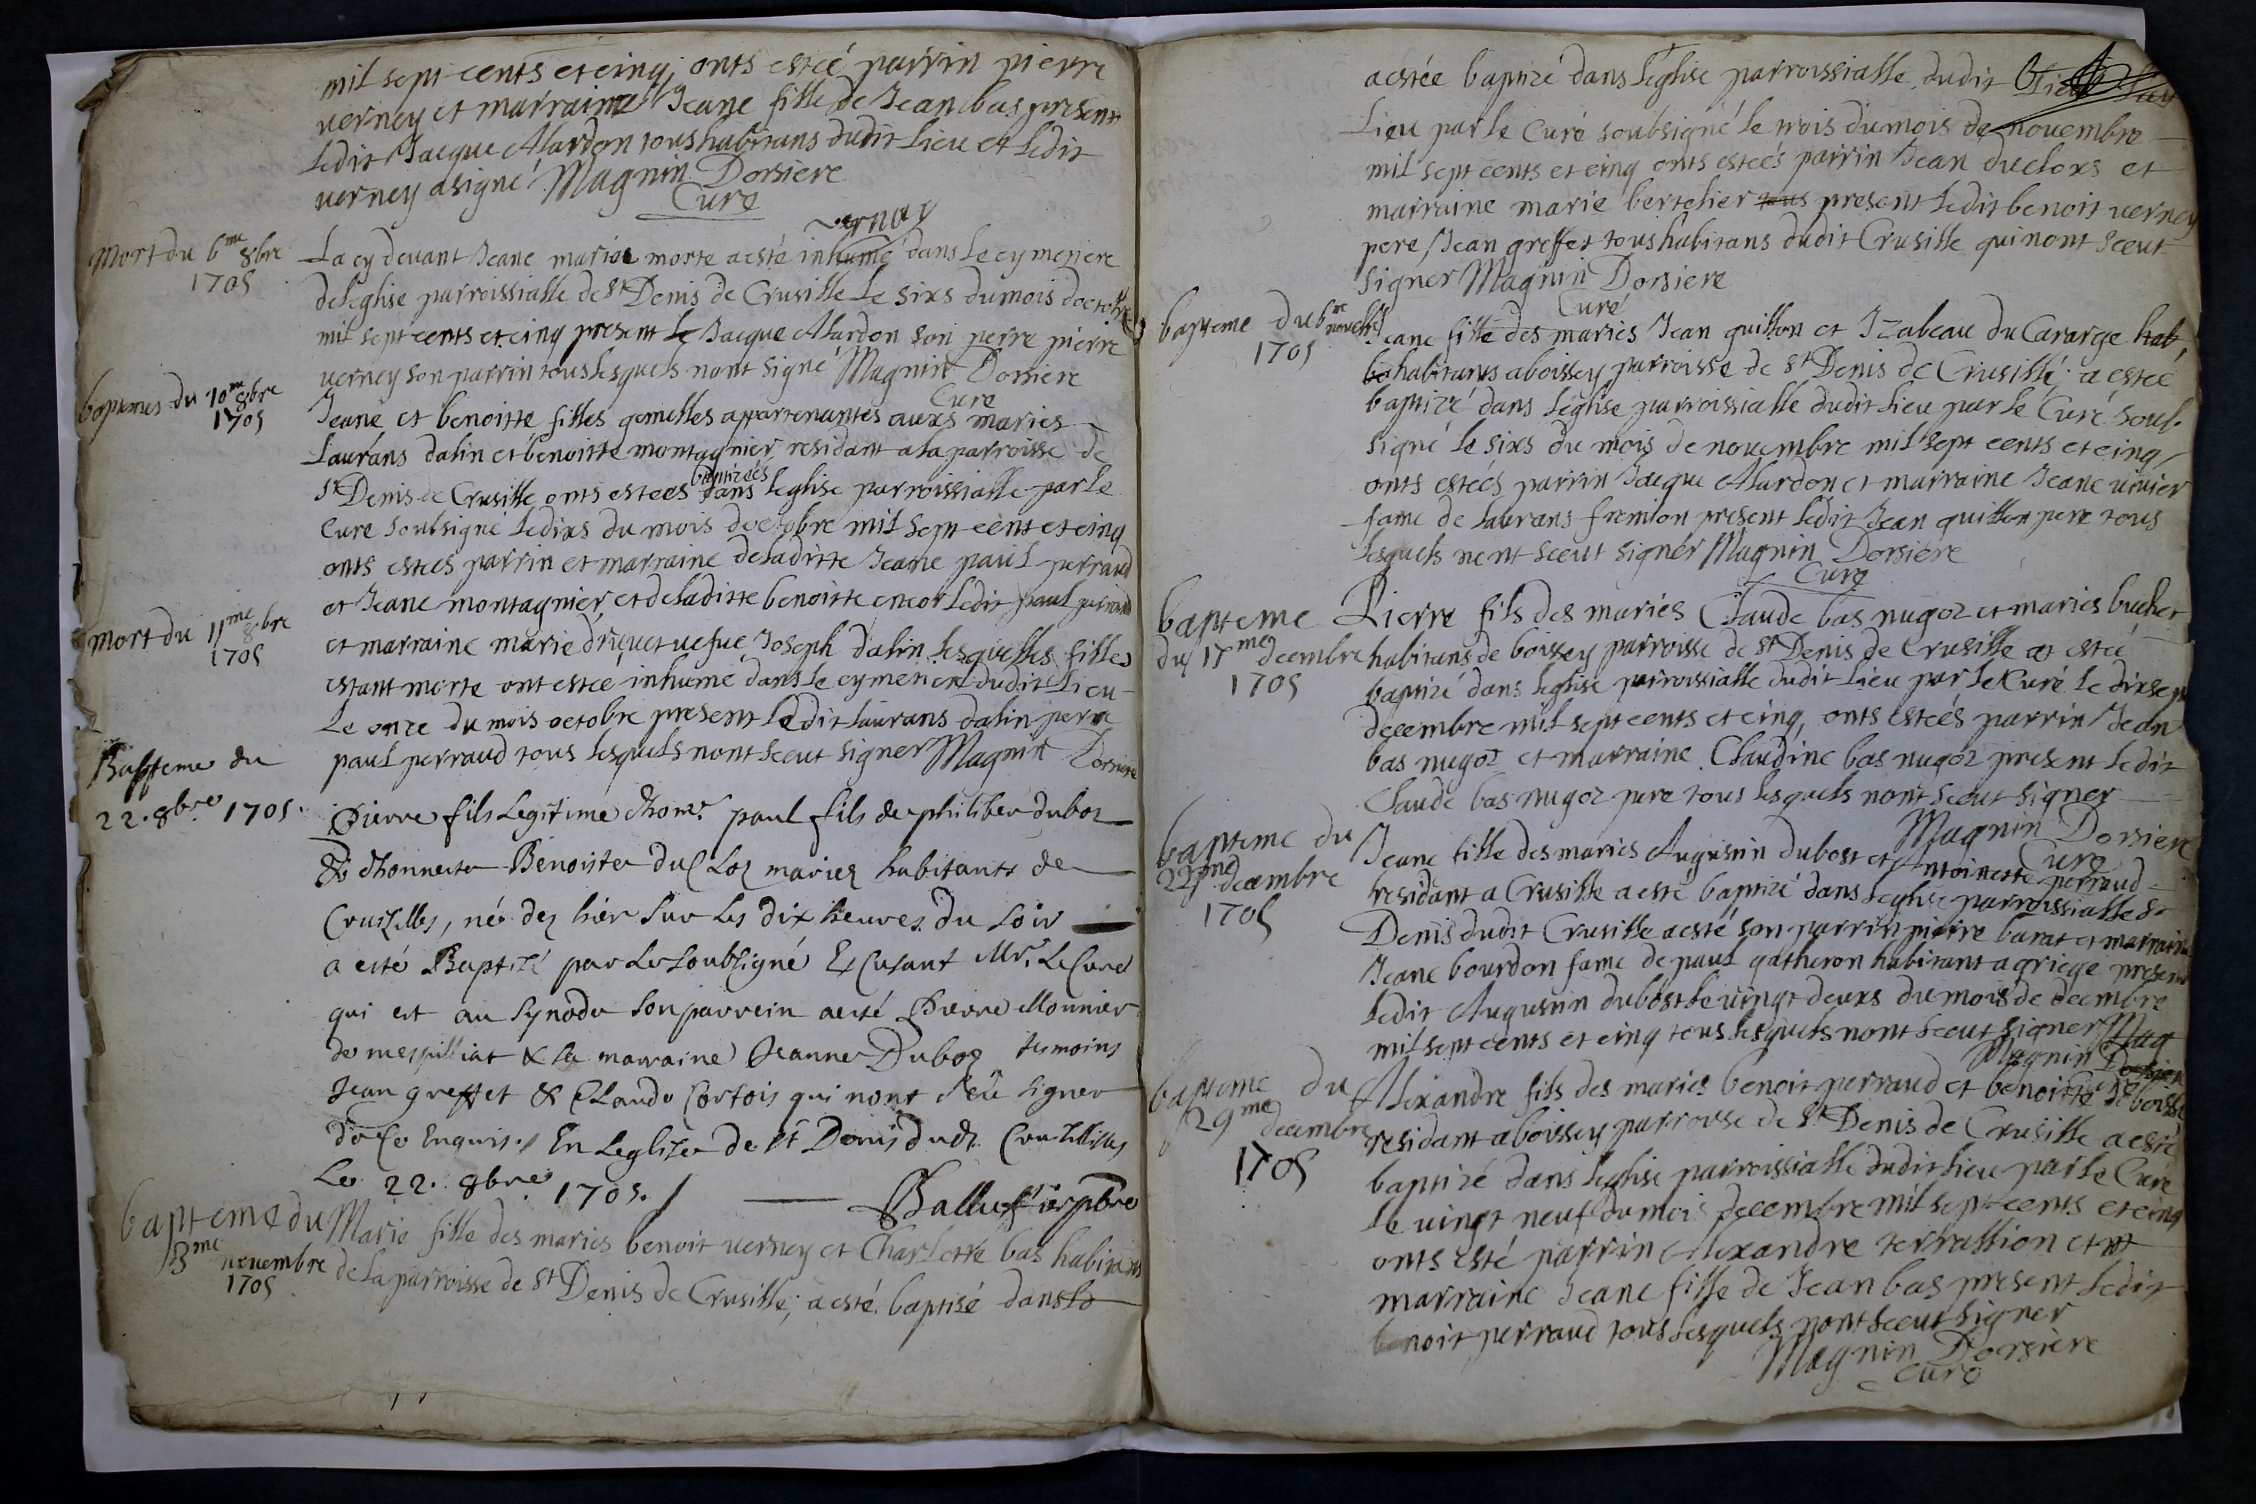 mil sept cents et cinq, onts estéé parrin pierre
verney et marraine Jeane fille de Jean bas present
ledit Jacque Alardon tous habitans dudit lieu et ledit
verney a signé Magnin Dorsiere
Curé
vernay
mort du 6me 8bre
1705
La cy devant Jeane mariée morte a esté inhumé dans le cymetiere
de leglise parroissialle de St Denis de Crusille le sixs du mois doctobre
mil sept cents et cinq present le Jacque Alardon son perre pierre
verney son parrin tous lesquels nont signé Magnin Dorsiere
Curé
baptemes du 10me 8bre
1705
Jeane et benoitte filles gemelles appartenantes auxs mariés
Laurans dalin et benoitte montagnier residant a la parroisse de
baptizéés
St Denis de Crusille onts estees dans leglise parroissialle par le
Curé soubsigné le dixs du mois doctobre mil sept cent et cinq
onts estéés parrin et marraine de laditte Jeane paul perraud
et Jeane montagnier, et de laditte benoitte encor ledit paul perraud
mort du 11me 8bre
1705
et marraine marie driguet vefue Joseph dalin lesquelles filles
estant morte ont estéé inhumé dans le cymetiere dudit lieu
le onze du mois octobre present ledit laurans dalin perre
paul perraud tous lesquels nont sceut signer Magnin Dorsiere
Bapteme du
22. 8bre 1705.
Pierre fils legitime dhonn. paul fils de philiber duboz
& dhonneste Benoiste du Cloz mariez habitants de
Cruzilles, né dez hier sur les dix heures du soir
a esté Baptizé par le soubsigné Excusant Mr. le Curé
qui est au synode son parrein a esté Pierre Monnier
de mespilliat & la marraine Jeanne Duboz tesmoins
Jean greffet & Claude Cortois qui nont sceü signer
de ce Enquis./ En leglize de st Denis dudt Cruzillies
Le 22. 8bre 1705./ Balluffier pbre
bapteme du
3me novembre
1705
Marie fille des mariés benoit verney et Charlotte bas habitans
de la parroisse de St Denis de Crusille, a esté baptisé dans le
a estée baptizé dans leglise parroissialle dudit
Lieu par le Curé soubsigné le trois du mois de novembre
mil sept cents et cinq onts estéés parrin Jean duclors et
marraine marie bertelier tous present ledit benoit verney
pere, Jean greffet tous habitans dudit Crusille qui nont sceut
signer Magnin Dorsiere
Curé
bapteme du 6me novembre
1705
Jeane fille des mariés Jean quillon et Izabeau du Cararge hab,
ba habitants a boissey parroisse de St Denis de Crusille, a estéé
baptizé dans leglise parroissialle dudit lieu par le Curé soub.
signé le sixs du mois de novembre mil sept cents et cinq
onts estéés parrin Jacque Alardon et marraine Jeane vivier
fame de laurans fremion present ledit Jean quillon pere tous
lesquels nont sceut signér Magnin Dorsiere
Curé
bapteme
du 17me decembre
1705
Pierre fils des mariés Claude bas nugoz et mariés buchet
habitans de boissey parroisse de St Denis de Crusille a estéé
baptizé dans leglise parroissialle dudit lieu par le Curé le dixsept
decembre mil sept cents et cinq, onts estéés parrin Jean
bas nugoz et marraine Claudine bas nugoz present ledit
Claude bas nugoz pere tous lesquels nont sceut signer
Magnin Dorsiere
Curé
bapteme du
22me decembre
1705
Jeane fille des mariés Augustin dubost et Antoinette perraud
residant a Crusille a esté baptizé dans leglise parroissialle St
Denis dudit Crusille a esté son parrin pierre barat et marraine
Jeane bourdon fame de paul gatheron habitant a griege present
ledit Augustin dubost le vingt deuxs du mois de decembre
mil sept cents et cinq tous lesquels nont sceut signer Mag
Magnin Dorsiere
Curé
bapteme du
29me decembre
1705
Alexandre fils des mariés benoit perraud et benoitte de boisse
residant a boissey parroisse de St Denis de Crusille a esté
baptizé dans leglise parroissialle dudit lieu par le Curé
le vingt neuf du mois decembre mil sept cents et cinq
onts esté parrin Alexandre terrassion et
marraine Jeane fille de Jean bas present ledit
benoit perraud tous lesquels nont sceut signer
Magnin Dorsiere
Curé